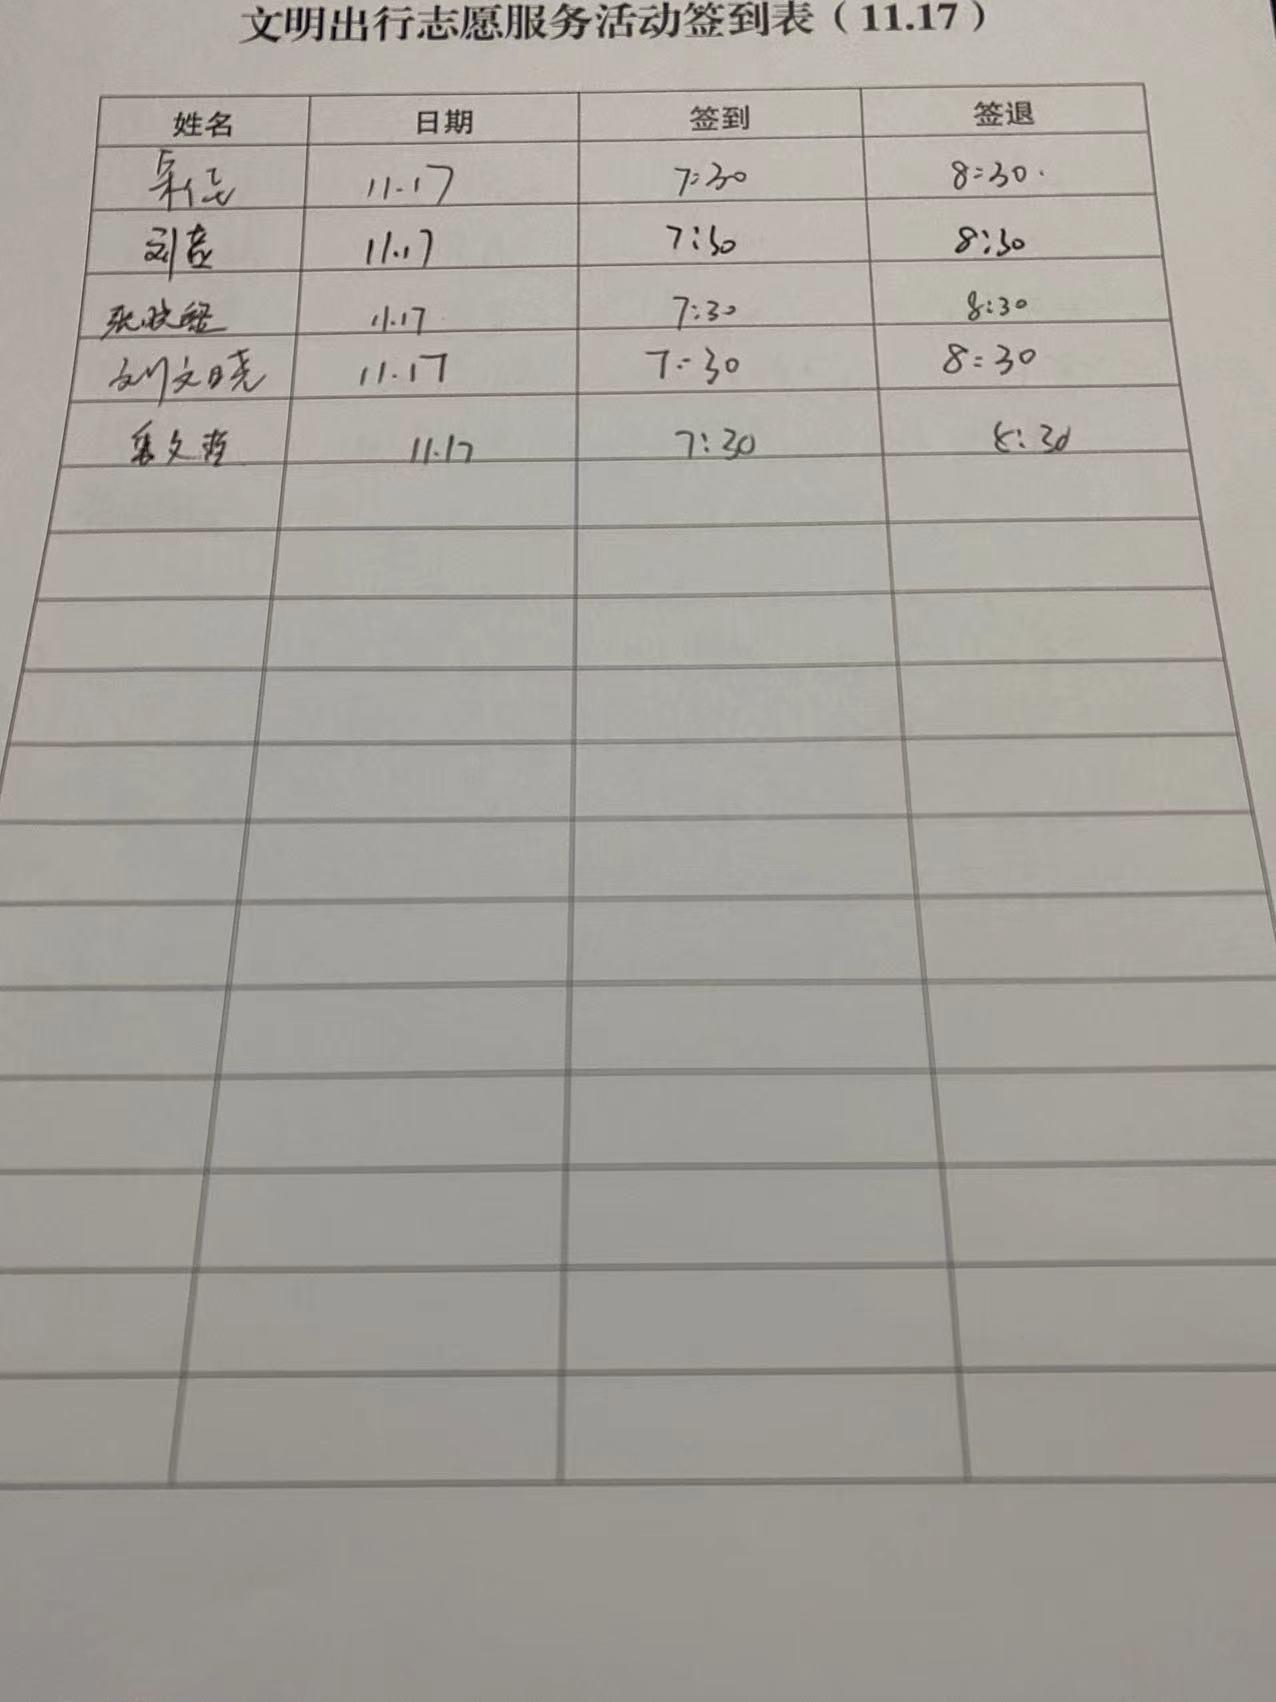 文明出行志愿服务活动签到表（11.17）
姓名 日期 签到 签退
11.17 7:30 8:30.
刘 11.17 7:30 8:30
张 11.17 7:30 8:30
刘文晓 11.17 7:30 8:30
文哲 11.17 7:30 8:30